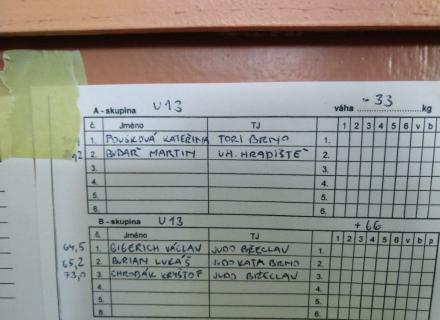 A - skupina U13 váha -33 kg
č. Jméno TJ 1 2 3 4 5 6 v b
1. POUŠKOVÁ KATEŘINA TORI BRNO 1.
2. MARTIN UH. HRADIŠTĚ 2.
3. 3.
4. 4.
5. 5.
6. 6.
B - skupina U13 +66
č. Jméno TJ 1 2 3 4 5 6 v b p
64,5 1. GIBERICH VÁCLAV JUDO BŘECLAV 1
65,2 2. BURIAN LUKÁŠ JUDO KATA BRNO 2
73,0 3. CHROBÁK KRYŠTOF JUDO BŘECLAV 3
4. 4.
5. 5.
6. 6.